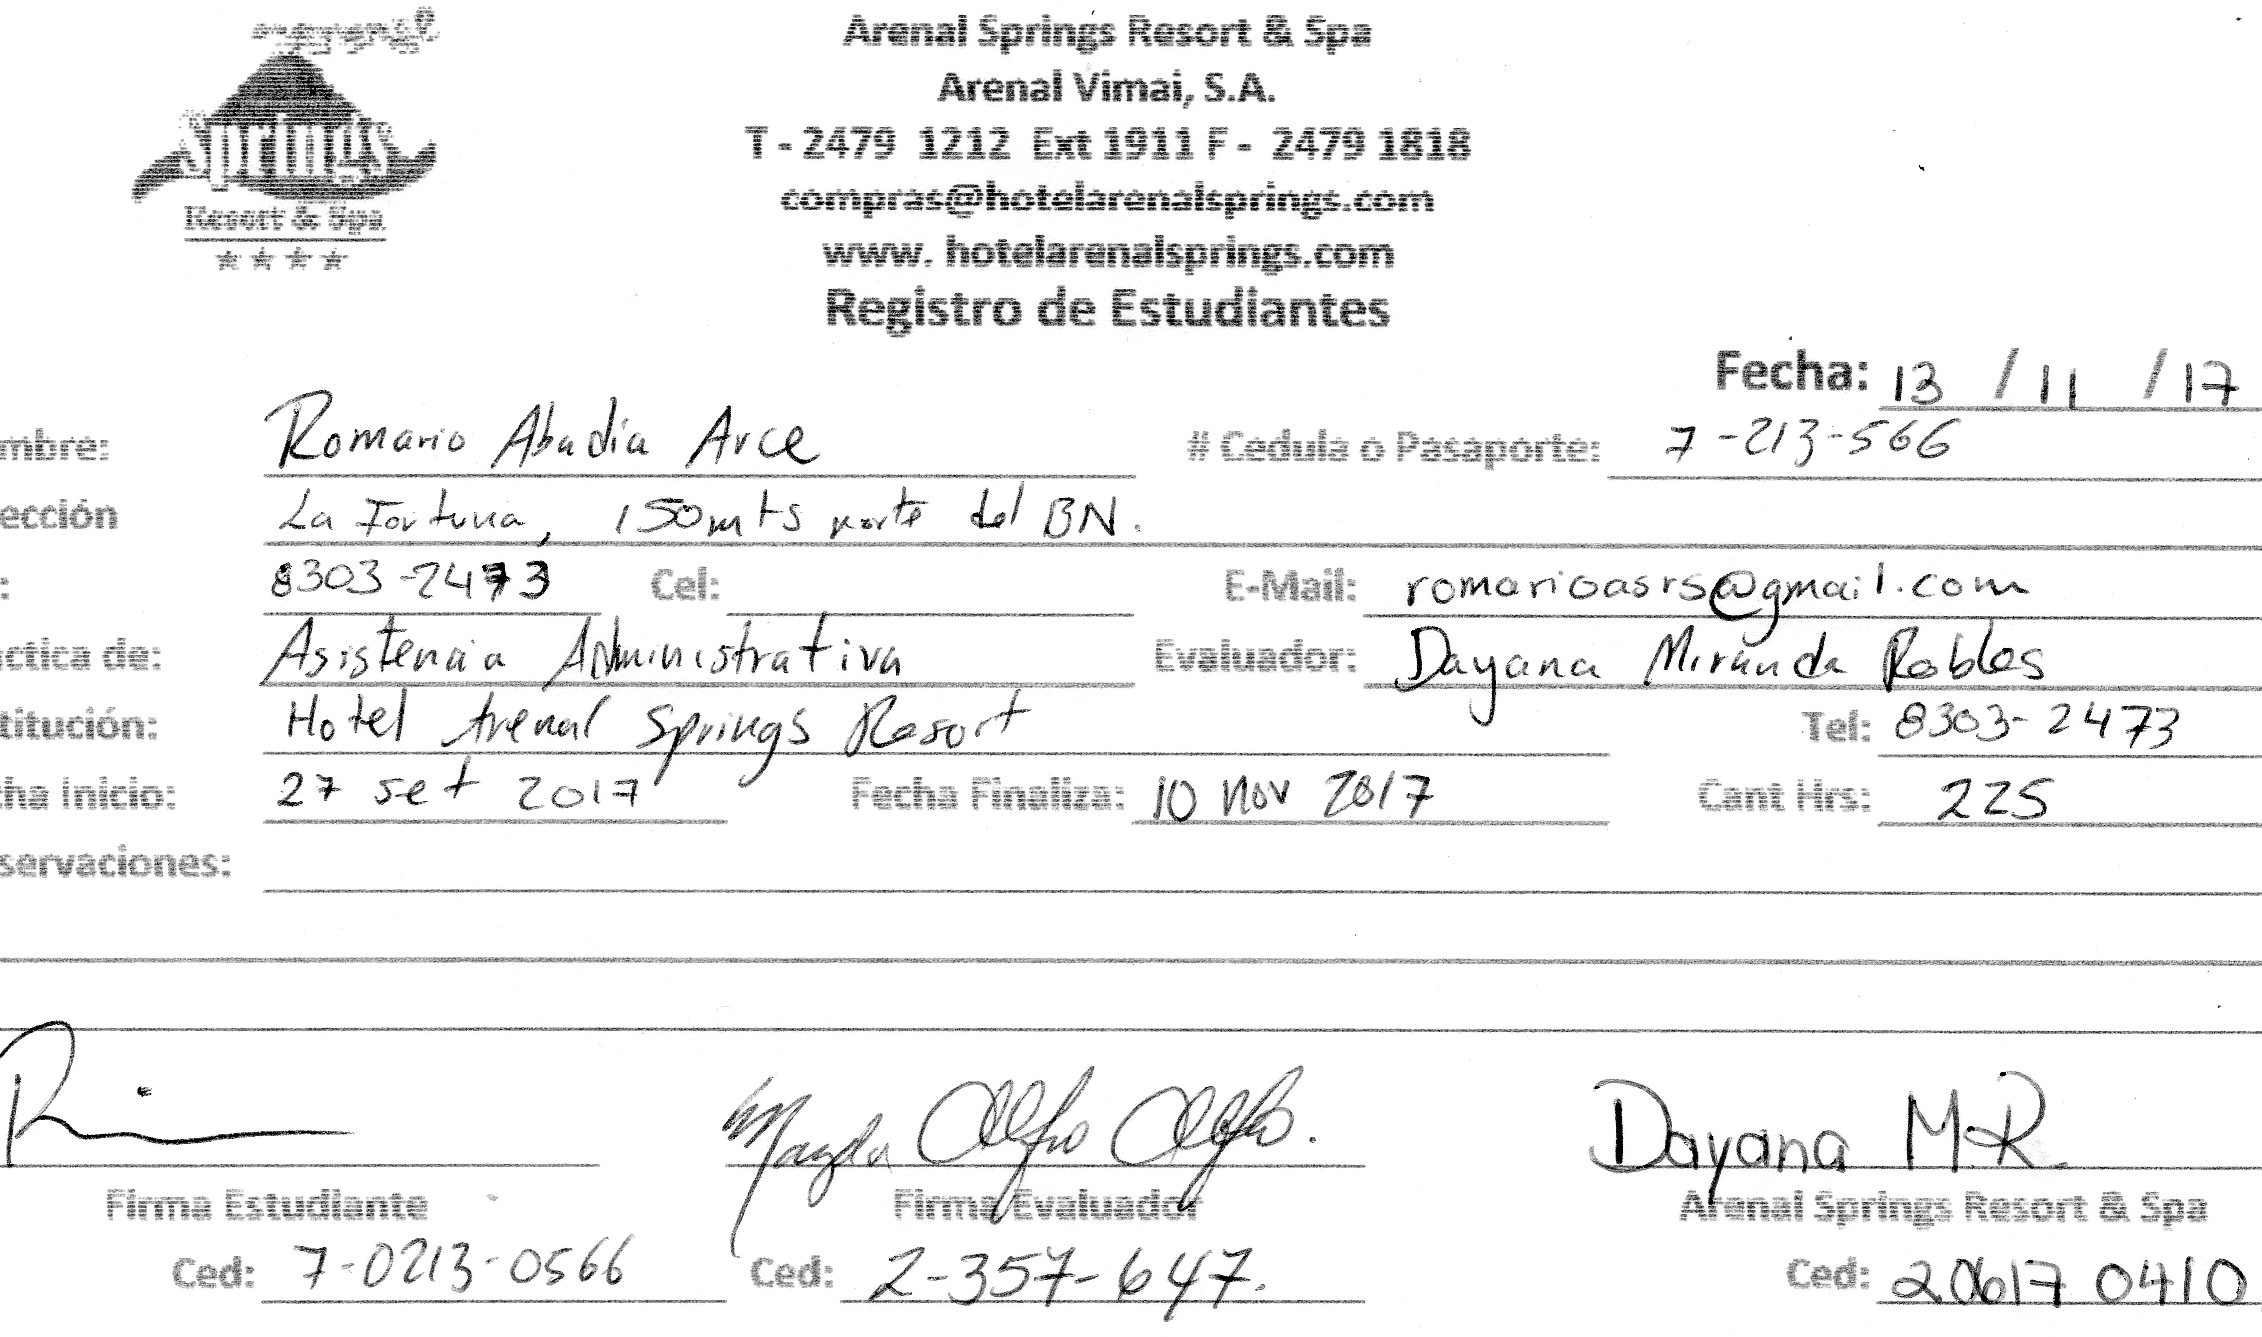 Springs
Resort & Spa
Arenal Springs Resort & Spa
Arenal Vimai, S.A.
T - 2479 1212 Ext 1911 F - 2479 1818
compras@hotelarenalsprings.com
www. hotelarenalsprings.com
Registro de Estudiantes
Fecha: 13 / 11 / 17
mbre: Romario Abadia Arce # Cedula o Pasaporte: 7-213-566
ección La Fortuna, 150mts norte del BN.
: 8303-2473 Cel: E-Mail: romarioasrs@gmail.com
ctica de: Asistencia Administrativa Evaluador: Dayana Miranda Robles
titución: Hotel Arenal Springs Resort Tel: 8303-2473
ha inicio: 27 set 2017 Fecha Finaliza: 10 Nov 2017 Cant Hrs: 225
servaciones:
Magda Alfro Alfro. Dayana M.R.
Firma Estudiante Firma Evaluador Arenal Springs Resort & Spa
Ced: 7-0213-0566 Ced: 2-357-647. Ced: 20617 0410